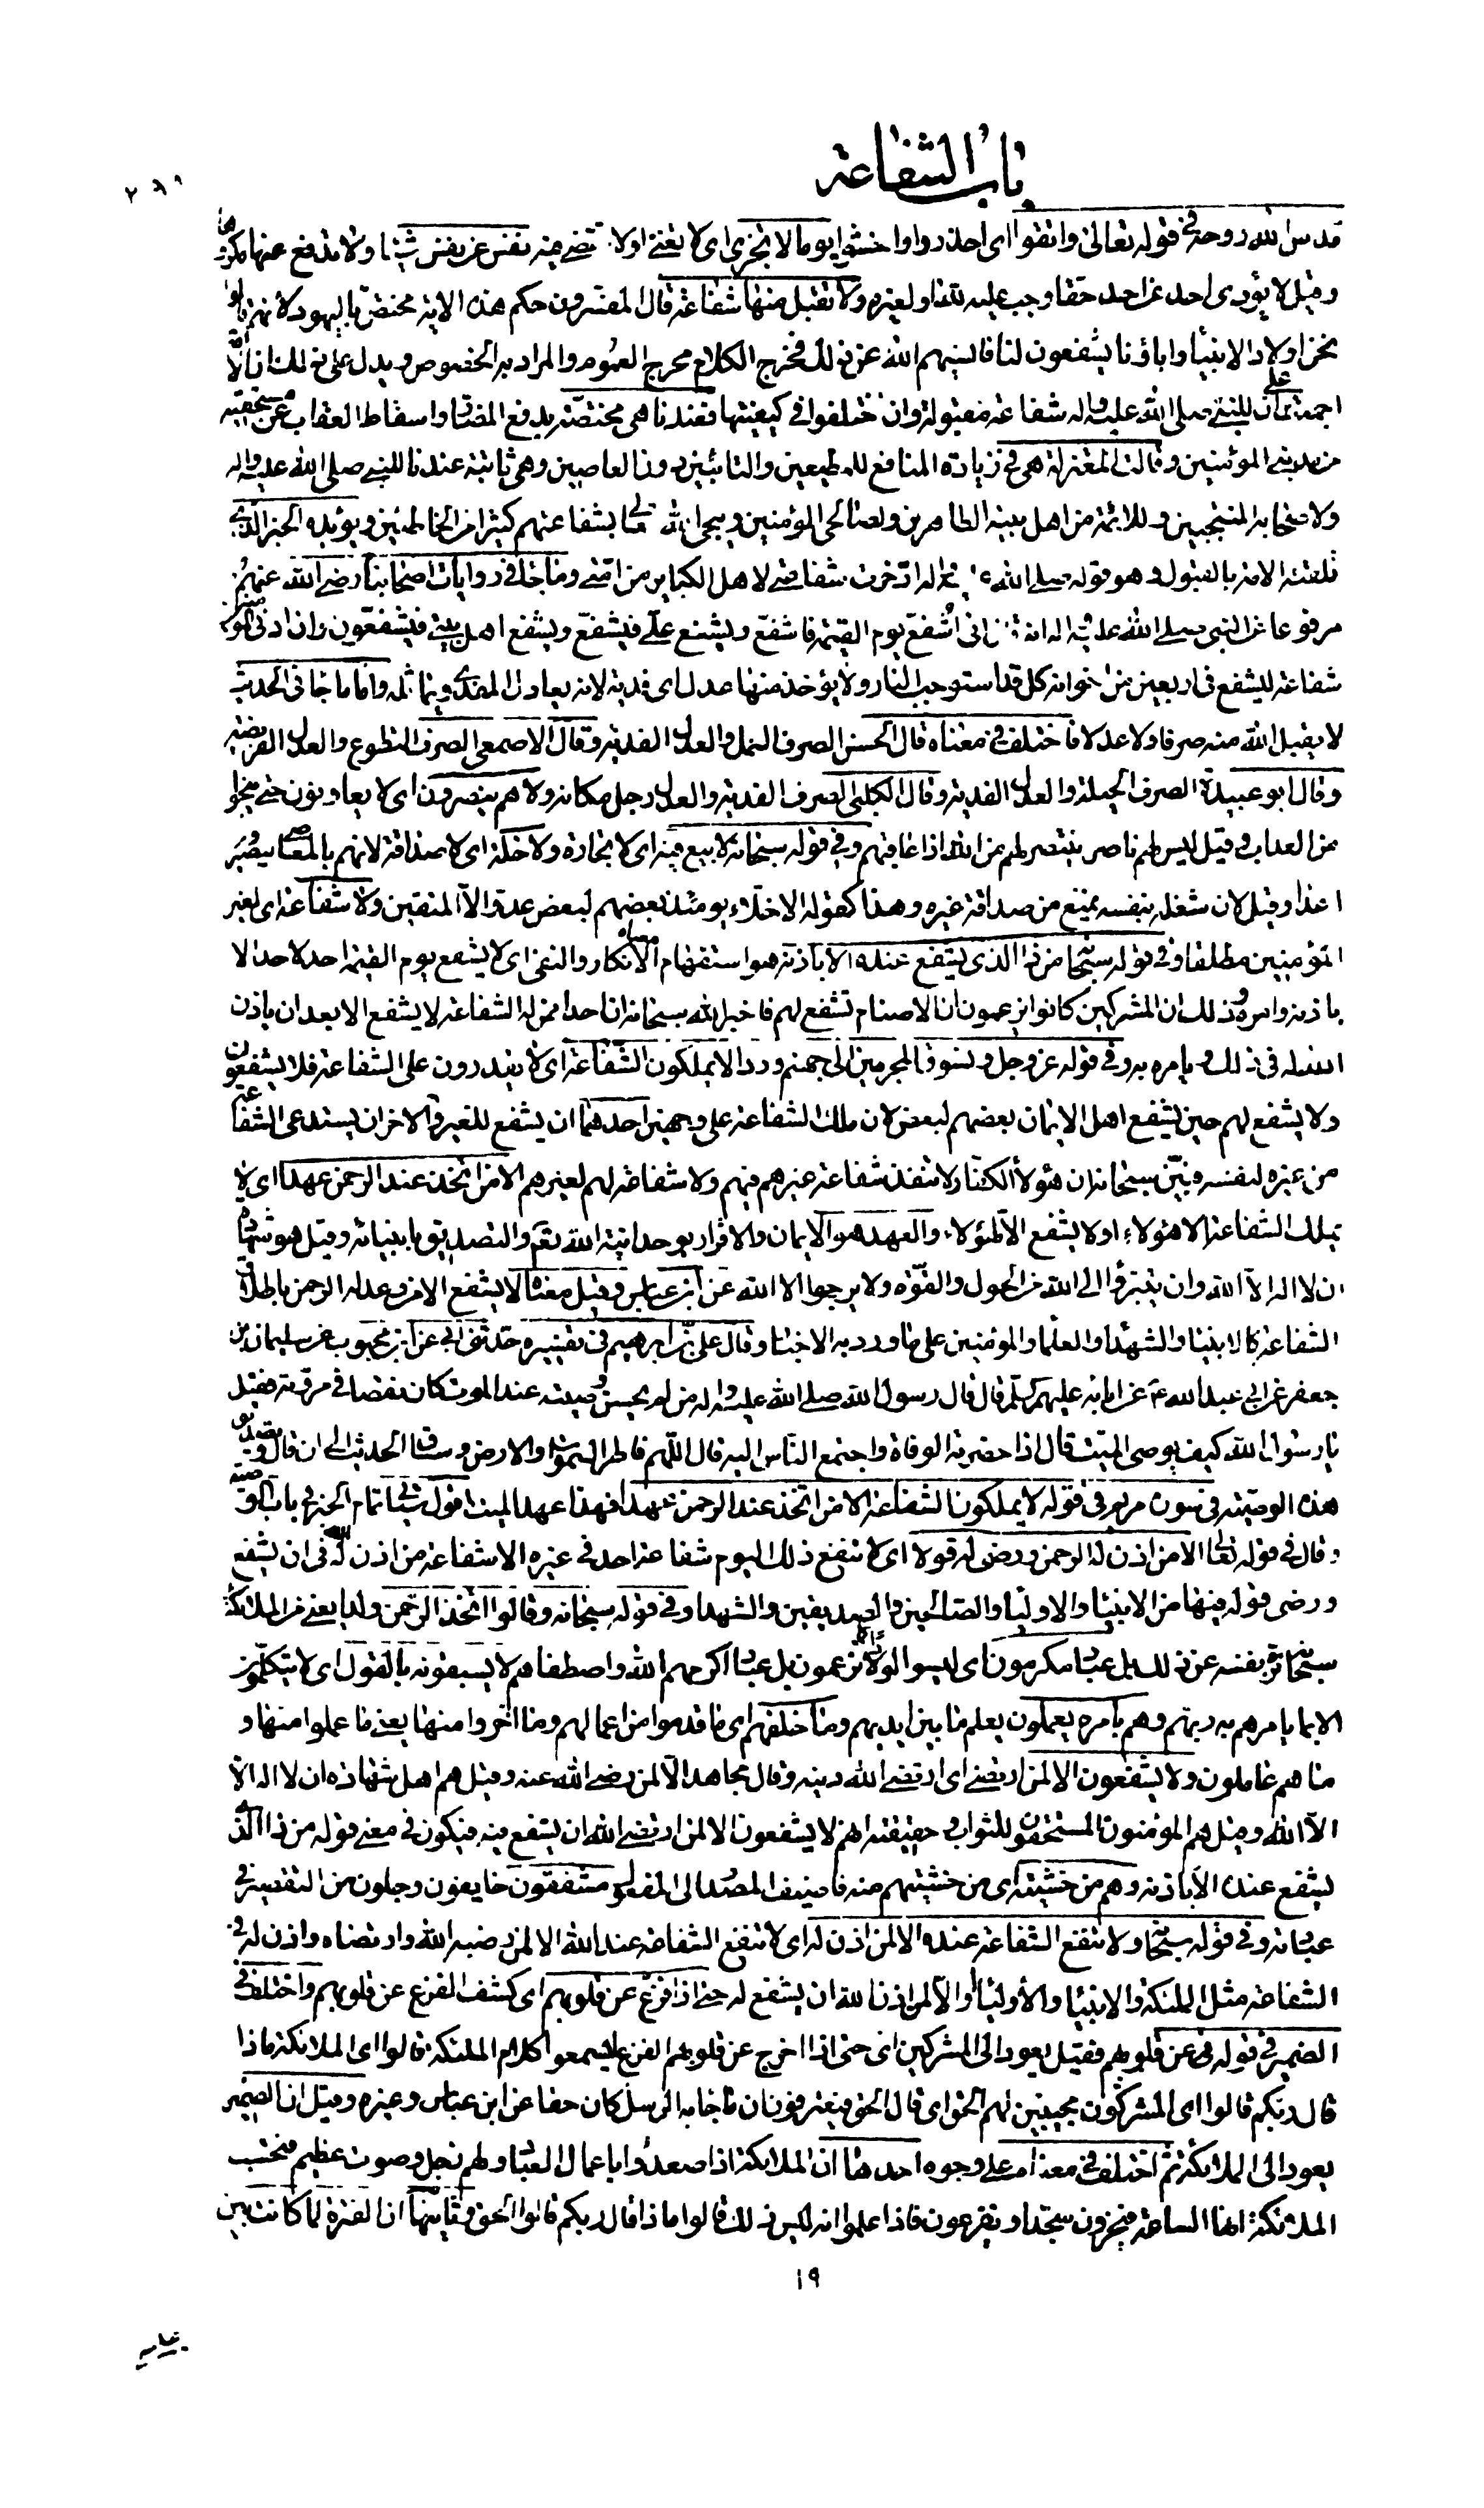 باب الشفاعة
قدس الله روحه في قوله تعالى واتقوا اى احذروا واخشوا يوما لا تجزى اى لا تغنى اولا تقضى فيه نفس عن نفس شيئا ولا تدفع عنها مكروها
وقيل لا يؤدى احد عن احد حقا وجب عليه لله او لغيره ولا تقبل منها شفاعة قال المفسرون حكم هذه الاية مختص باليهود لانهم قالوا
نحن اولاد الانبياء واباؤنا يشفعون لنا فايسهم الله عن ذلك فخرج الكلام مخرج العموم والمراد به الخصوص ويدل على ذلك ان الامة
اجمعت على ان للنبي صلى الله عليه واله شفاعة مقبولة وان اختلفوا في كيفيتها فعندنا هى مختصة بدفع المضار واسقاط العقاب عن مستحقيه
من مذنبى المؤمنين وقالت المعتزلة هى في زيادة المنافع للمطيعين والتائبين دون العاصين وهى ثابتة عندنا للنبي صلى الله عليه واله
ولاصحابه المنتجبين وللائمة من اهل بيته الطاهرين ولصالحى المؤمنين وينجى الله تعالى بشفاعتهم كثيرا من الخاطئين ويؤيده الخبر الذى
تلقته الامة بالقبول وهو قوله صلى الله عليه واله ادخرت شفاعتى لاهل الكباير من امتى وما جاء في روايات اصحابنا رضى الله عنهم
مرفوعا عن النبي صلى الله عليه واله انه قال انى اشفع يوم القيمة فاشفع ويشفع على فيشفع ويشفع اهل بيتى فيشفعون وان ادنى المؤمنين
شفاعة ليشفع في اربعين من اخوانه كل قد استوجب النار ولا يؤخذ منها عدل اى فدية لانه يعادل المفدى ويماثله واما ما جاء في الحديث
لا يقبل الله منه صرفا ولا عدلا فاختلف في معناه قال الحسن الصرف العمل والعدل الفدية وقال الاصمعى الصرف التطوع والعدل الفريضة
وقال ابو عبيدة الصرف الحيلة والعدل الفدية وقال الكلبى الصرف الفدية والعدل رجل مكانه ولا هم ينصرون اى لا يعاونون حتى ينجوا
من العذاب وقيل ليس لهم ناصر ينتصر لهم من الله اذا عاقبهم وفي قوله سبحانه لا بيع فيه اى لا تجارة ولا خلة اى لا صداقة لانهم بالمعاصى يصير
اعداء وقيل لان شغله بنفسه يمنع من صداقة غيره وهذا كقوله الاخلاء يومئذ بعضهم لبعض عدو الا المتقين ولا شفاعة اى لغير
المؤمنين مطلقا وفي قوله سبحانه من ذا الذى يشفع عنده الا باذنه هو استفهام معناه الانكار والنفى اى لا يشفع يوم القيمة احد لاحد الا
باذنه وامره وذلك ان المشركين كانوا يزعمون ان الاصنام تشفع لهم فاخبر الله سبحانه ان احدا ممن له الشفاعة لا يشفع الا بعد ان ياذن
الله له في ذلك ويامره به وفي قوله عز وجل ونسوق المجرمين الى جهنم وردا لا يملكون الشفاعة اى لا يقدرون على الشفاعة فلا يشفعون
ولا يشفع لهم حين يشفع اهل الايمان بعضهم لبعض لان ملك الشفاعة على وجهين احدهما ان يشفع للغير والاخر ان يستدعى الشفاعة
من غيره لنفسه فبين سبحانه ان هؤلاء الكفار لا تنفذ شفاعة غيرهم فيهم ولا شفاعة لهم لغيرهم الا من اتخذ عند الرحمن عهدا اى لا
يملك الشفاعة الا هؤلاء اولا يشفع الا لهؤلاء والعهد هو الايمان والاقرار بوحدانية الله تعالى والتصديق بانبيائه وقيل هو شهادة
ان لا اله الا الله وان يتبرأ الى الله من الحول والقوة ولا يرجوا الا الله عن ابن عباس وقيل معناه لا يشفع الا من وعد له الرحمن باطلاق
الشفاعة كالانبياء والشهداء والعلماء والمؤمنين على ما ورد به الاخبار وقال على بن ابرهيم في تفسيره حدثنى ابى عن ابن محبوب عن سليمان بن
جعفر عن ابى عبد الله عن ابائه عليهم السلم قال قال رسول الله صلى الله عليه واله من لم يحسن وصيته عند الموت كان نقصا في مروته فقيل
يا رسول الله كيف يوصى الميت قال اذا حضرته الوفاة واجتمع الناس اليه قال اللهم فاطر السموات والارض وساق الحديث الى ان قال وتصديق
هذه الوصية في سورة مريم في قوله لا يملكون الشفاعة الا من اتخذ عند الرحمن عهدا فهذا عهد الميت اقول سياتى تمام الخبر في باب الوصية
وقال في قوله تعالى الا من اذن له الرحمن ورضى له قولا اى لا تنفع ذلك اليوم شفاعة احد في غيره الا شفاعة من اذن الله له في ان يشفع
ورضى قوله فيها من الانبياء والاولياء والصالحين والصديقين والشهداء وفي قوله سبحانه وقالوا اتخذ الرحمن ولدا يعنى من الملائكة
سبحانه نزه نفسه عن ذلك بل عباد مكرمون اى ليسوا اولادا كما تزعمون بل عباد اكرمهم الله واصطفاهم لا يسبقونه بالقول اى لا يتكلمون
الا بما يامرهم به ربهم وهم بامره يعملون يعلم ما بين ايديهم وما خلفهم اى ما قدموا من اعمالهم وما اخروا منها يعنى ما عملوا منها و
ما هم عاملون ولا يشفعون الا لمن ارتضى اى ارتضى الله دينه وقال مجاهد الا لمن رضى الله عنه وقيل هم اهل شهادة ان لا اله الا
الا الله وقيل هم المؤمنون المستحقون للثواب وحقيقته انهم لا يشفعون الا لمن ارتضى الله ان يشفع فيه فيكون في معنى قوله من ذا الذى
يشفع عنده الا باذنه وهم من خشيته اى من خشيتهم منه فاضيف المصدر الى المفعول مشفقون خايفون وجلون من التقصير في
عبادته وفي قوله سبحانه ولا تنفع الشفاعة عنده الا لمن اذن له اى لا تنفع الشفاعة عند الله الا لمن رضيه الله وارتضاه واذن له في
الشفاعة مثل الملئكة والانبياء والاولياء او الا لمن اذن الله ان يشفع له حتى اذا فزع عن قلوبهم اى كشف الفزع عن قلوبهم واختلف في
الضمير في قوله عن قلوبهم فقيل يعود الى المشركين اى حتى اذا اخرج عن قلوبهم الفزع ليسمعوا كلام الملئكة قالوا اى الملائكة ماذا
قال ربكم قالوا اى المشركون مجيبين لهم الحق اى قال الحق فيعترفون ان ما جاء به الرسل كان حقا عن ابن عباس وغيره وقيل ان الضمير
يعود الى الملائكة ثم اختلف في معناه على وجوه احدها ان الملائكة اذا صعدوا باعمال العباد ولهم زجل وصوت عظيم فتحسب
الملئكة انها الساعة فيخرون سجدا ويفزعون فاذا علموا انه ليس ذلك قالوا ماذا قال ربكم قالوا الحق وثانيها ان الفترة لما كانت بين
١٩